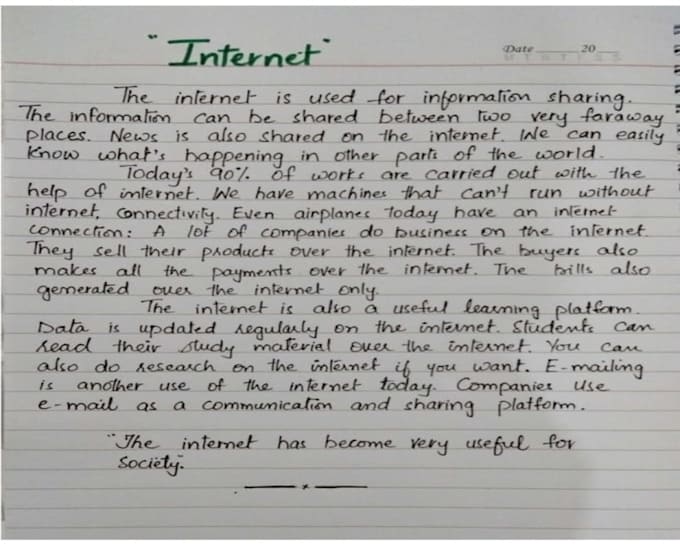 "Internet"
Date 20
M T W T F S S
The internet is used for information sharing.
The information can be shared between two very faraway
places. News is also shared on the internet. We can easily
know what's happening in other parts of the world.
Today's 90% of works are carried out with the
help of internet. We have machines that can't run without
internet, connectivity. Even airplanes today have an internet
connection: A lot of companies do business on the internet.
They sell their products over the internet. The buyers also
makes all the payments over the internet. The bills also
generated over the internet only.
The internet is also a useful learning platform.
Data is updated regularly on the internet. Students can
read their study material over the internet. You can
also do research on the internet if you want. E-mailing
is another use of the internet today. Companies use
e-mail as a communication and sharing platform.
"The internet has become very useful for
society."